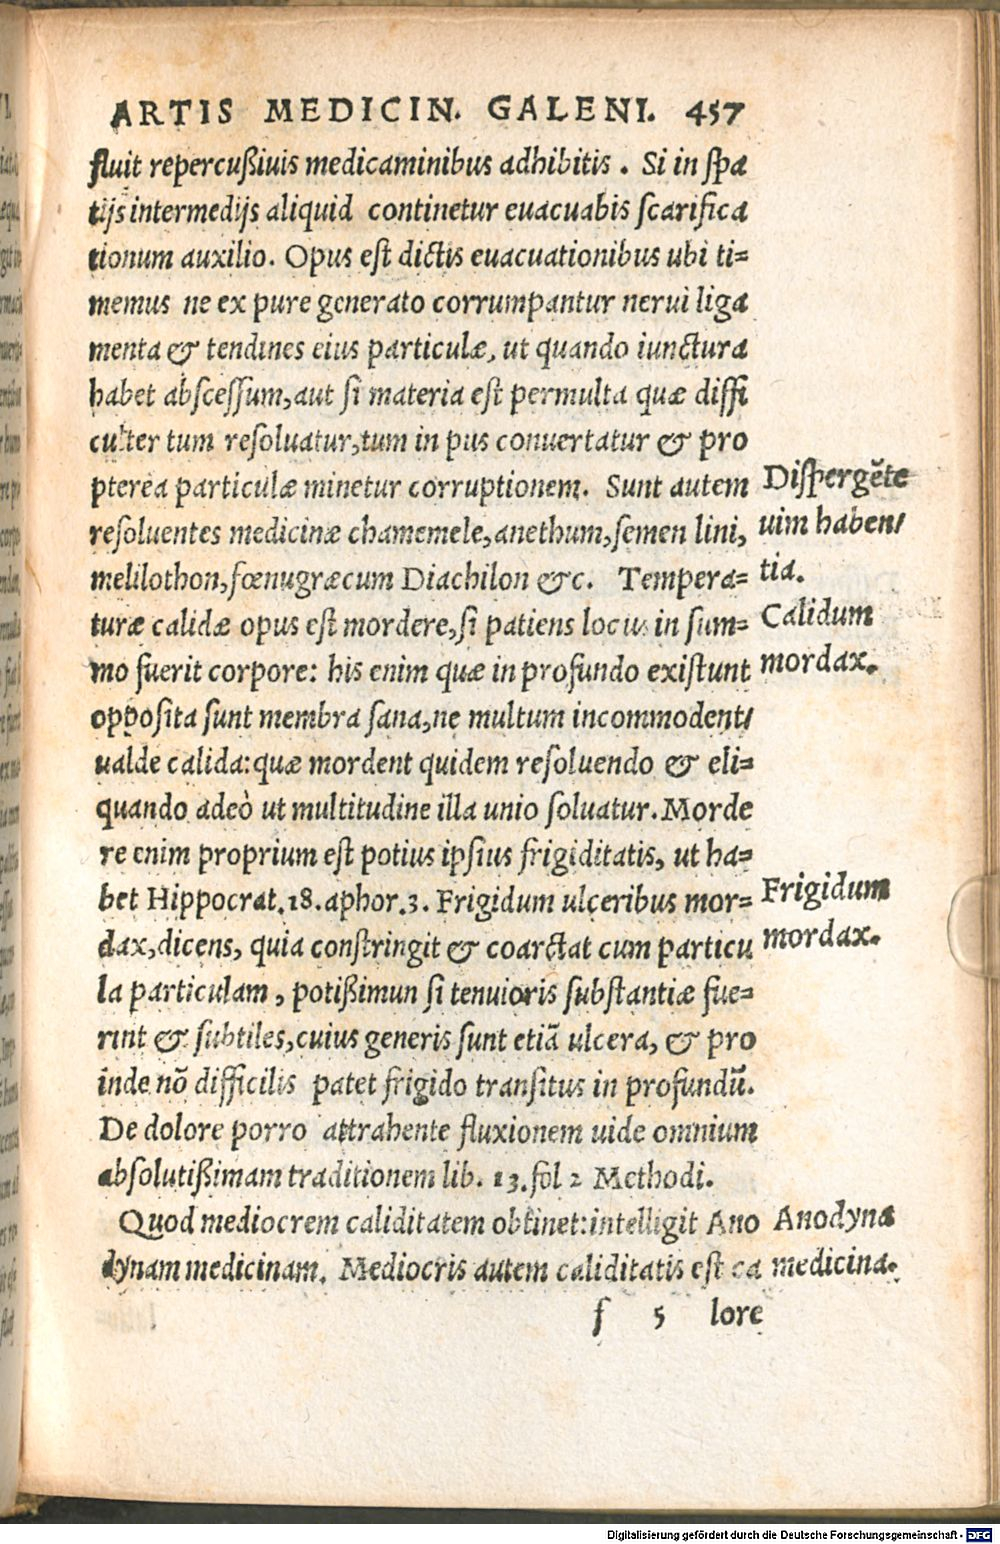 ARTIS MEDICIN. GALENI. 457
fluit repercußiuis medicaminibus adhibitis. Si in ſpa
tijs intermedijs aliquid continetur euacuabis ſcarifica
tionum auxilio. Opus eſt dictis euacuationibus ubi ti=
memus ne ex pure generato corrumpantur nerui liga
menta & tendines eius particulæ, ut quando iunctura
habet abſceſſum, aut ſi materia eſt permulta quæ diffi
culter tum reſoluatur, tum in pus conuertatur & pro
pterea particulæ minetur corruptionem. Sunt autem
reſoluentes medicinæ chamemele, anethum, ſemen lini,
melilothon, fœnugræcum Diachilon &c. Tempera=
turæ calidæ opus eſt mordere, ſi patiens locus in ſum=
mo fuerit corpore: his enim quæ in profundo exiſtunt
oppoſita ſunt membra ſana, ne multum incommodent,
ualde calida: quæ mordent quidem reſoluendo & eli=
quando adeò ut multitudine illa unio ſoluatur. Morde
re enim proprium eſt potius ipſius frigiditatis, ut ha=
bet Hippocrat. 18. aphor. 3. Frigidum ulceribus mor=
dax, dicens, quia conſtringit & coarctat cum particu
la particulam, potißimun ſi tenuioris ſubſtantiæ fue=
rint & ſubtiles, cuius generis ſunt etiã ulcera, & pro
inde nõ difficilis patet frigido tranſitus in profundũ.
De dolore porro attrahente fluxionem uide omnium
abſolutißimam traditionem lib. 13. fol 2 Methodi.
Quod mediocrem caliditatem obtinet: intelligit Ano
dynam medicinam. Mediocris autem caliditatis eſt ca
ſ 5 lore
Diſpergẽte
uim haben,
tia.
Calidum
mordax.
Frigidum
mordax.
Anodyna
medicina.
Digitalisierung gefördert durch die Deutsche Forschungsgemeinschaft - DFG